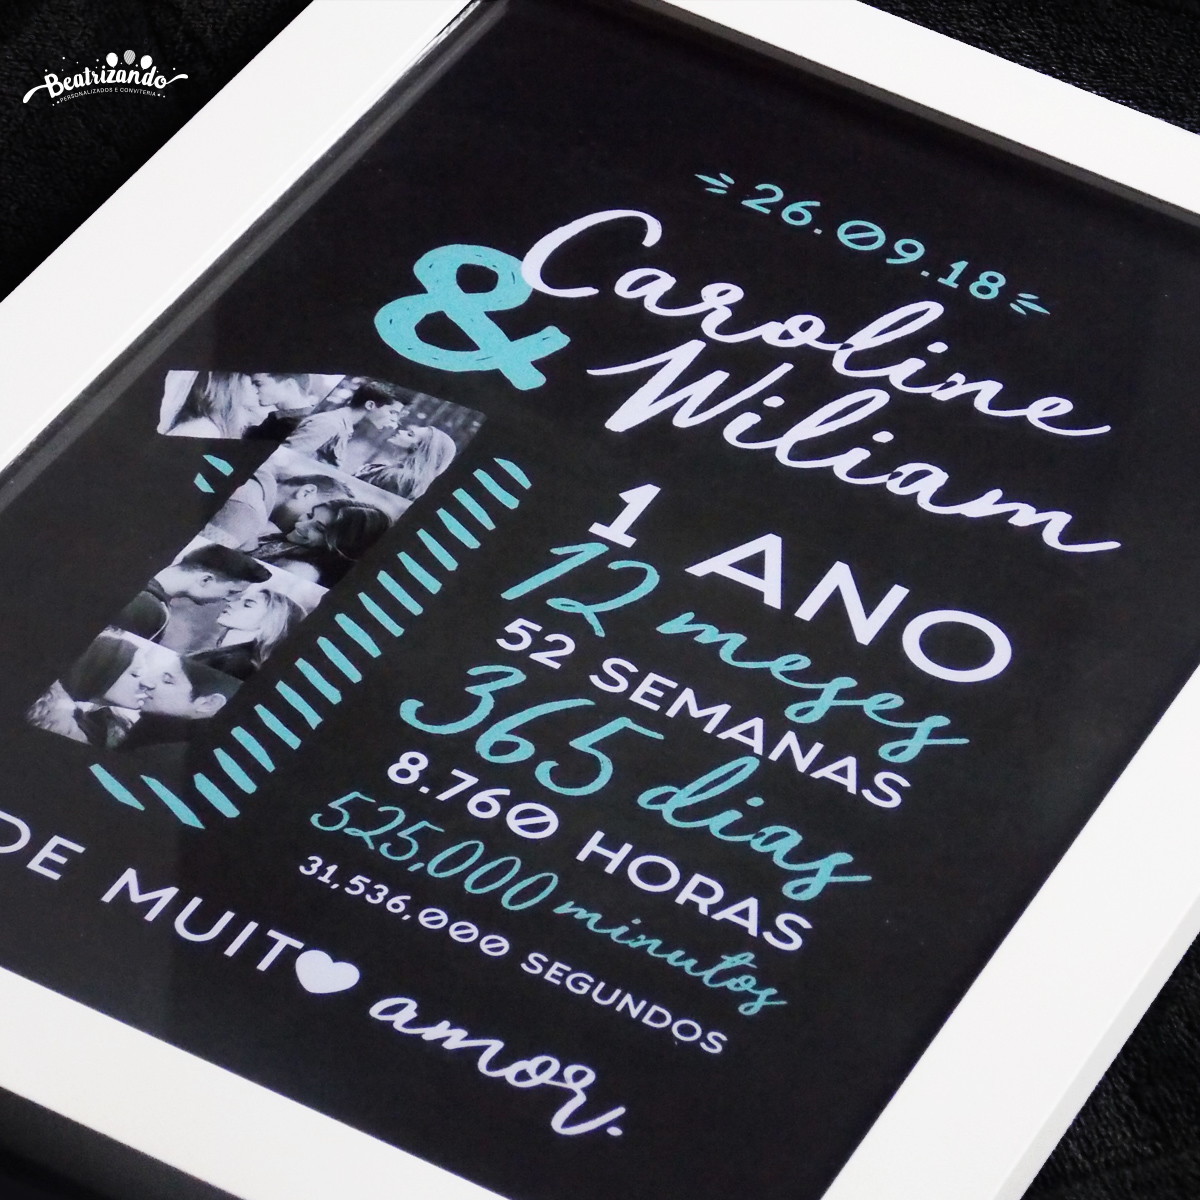 Beatrizando
PERSONALIZADOS E CONVITERIA
26.09.18
Caroline
& Wiliam
1 ANO
12 meses
52 SEMANAS
365 dias
8.760 HORAS
525,000 minutos
31,536,000 SEGUNDOS
DE MUITO amor.